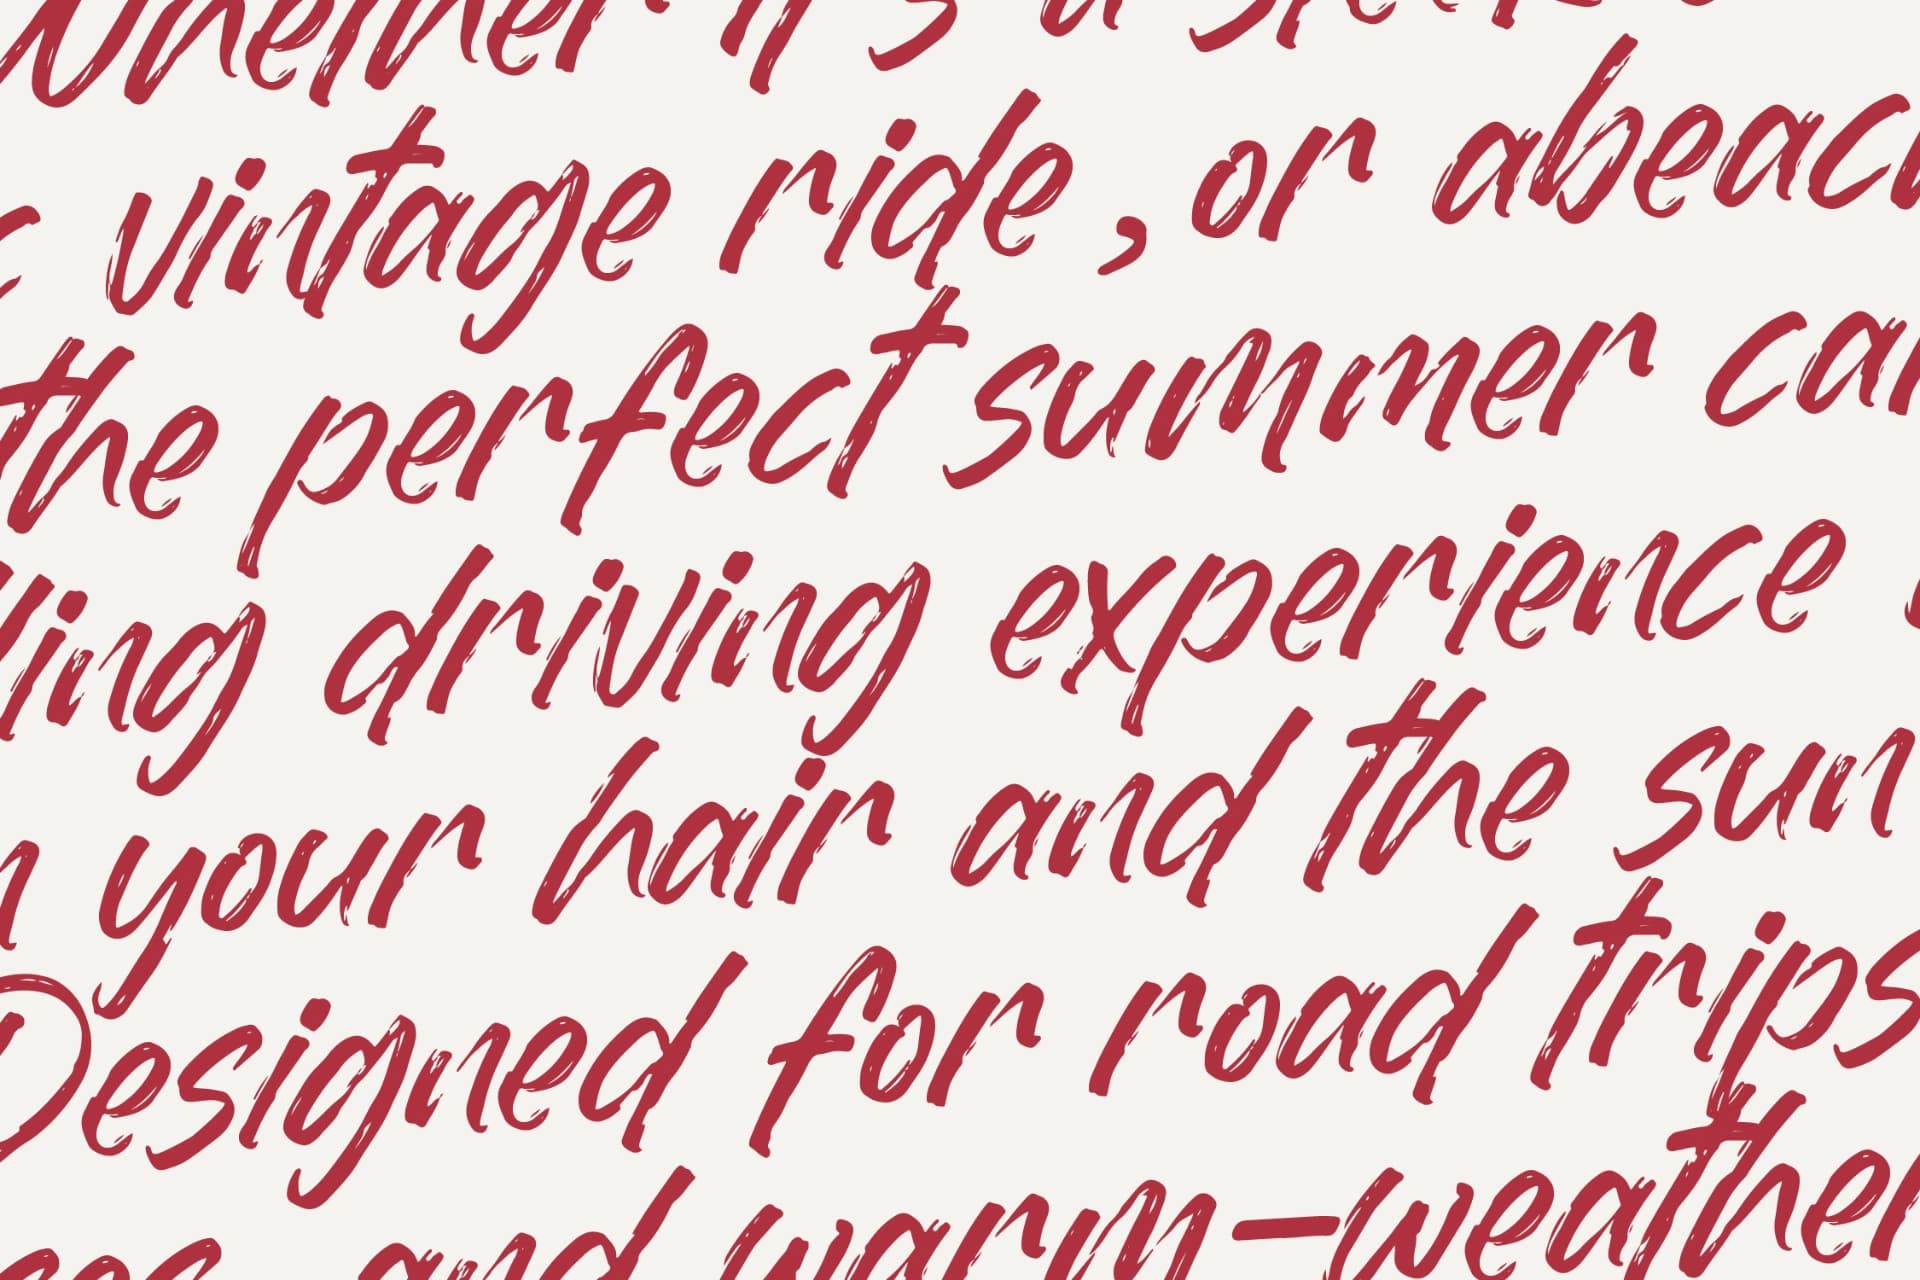 Whether it's a
vintage ride, or abeac
the perfect summer car
ling driving experience
your hair and the sun
Designed for road trips
and warm-weather